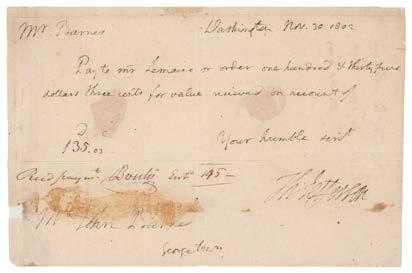 Mr Barnes Washington Nov. 30. 1802
Pay to mr Lemaire or order one hundred & thirty five
dollars three cents for value recieved on account of
D c
135.03 Your humble servt
Recd paymt Th: Jefferson
Mr John Barnes
Georgetown